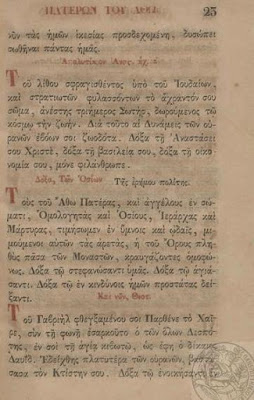 ΠΑΤΕΡΩΝ ΤΟΥ ΑΘΩ. 25
νῦν τὰς ἡμῶν ἱκεσίας προσδεχομένη, δυσώπει
σωθῆναι πάντας ἡμᾶς.
Ἀπολυτίκιον ἦχ. ά
Τοῦ λίθου σφραγισθέντος ὑπὸ τοῦ Ἰουδαίων,
καὶ στρατιωτῶν φυλασσόντων τὸ ἄχραντόν σου
σῶμα, ἀνέστης τριήμερος Σωτὴρ, δωρούμενος τῷ
κόσμῳ τὴν ζωήν. Διὰ τοῦτο αἱ Δυνάμεις τῶν οὐ-
ρανῶν ἐβόων σοι ζωοδότα. Δόξα τῇ Ἀναστάσει
σου Χριστὲ, δόξα τῇ βασιλείᾳ σου, δόξα τῇ οἰκο-
νομίᾳ σου, μόνε φιλάνθρωπε.
Δόξα, Τῶν Ὁσίων Τῆς ἐρήμου πολίτης.
Τοὺς τοῦ Ἄθω Πατέρας, καὶ ἀγγέλους ἐν σώ-
ματι, Ὁμολογητὰς καὶ Ὁσίους, Ἱεράρχας καὶ
Μάρτυρας, τιμήσωμεν ἐν ὕμνοις καὶ ᾠδαῖς, μι-
μούμενοι αὐτῶν τὰς ἀρετὰς, ἡ τοῦ Ὄρους πλη-
θὺς πᾶσα τῶν Μοναστῶν, κραυγάζοντες ὁμοφώ-
νως. Δόξα τῷ στεφανώσαντι ὑμᾶς. Δόξα τῷ ἁγιά-
σαντι. Δόξα τῷ ἐν κινδύνοις ἡμῶν προστάτας δεί-
ξαντι. Καὶ νῦν, Θεοτ.
Τοῦ Γαβριὴλ φθεγξαμένου σοι Παρθένε τὸ Χαῖ-
ρε, σὺν τῇ φωνῇ ἐσαρκοῦτο ὁ τῶν ὅλων Δεσπό-
της, ἐν σοὶ τῇ ἁγίᾳ κιβωτῷ, ὡς ἔφη ὁ δίκαιος
Δαυΐδ. Ἐδείχθης πλατυτέρα τῶν οὐρανῶν, βαστά-
σασα τὸν Κτίστην σου. Δόξα τῷ ἐνοικήσαντι ἐν